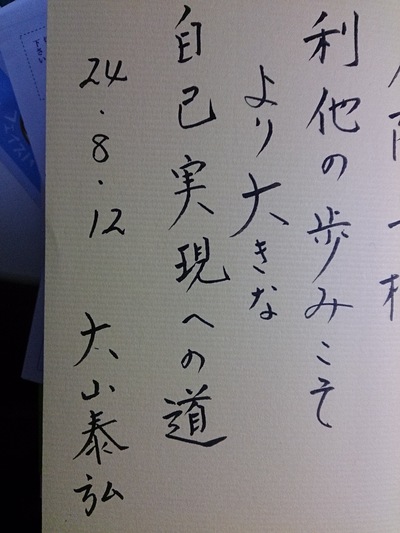 利他の歩みこそ
より大きな
自己実現への道
24.8.12 大山泰弘